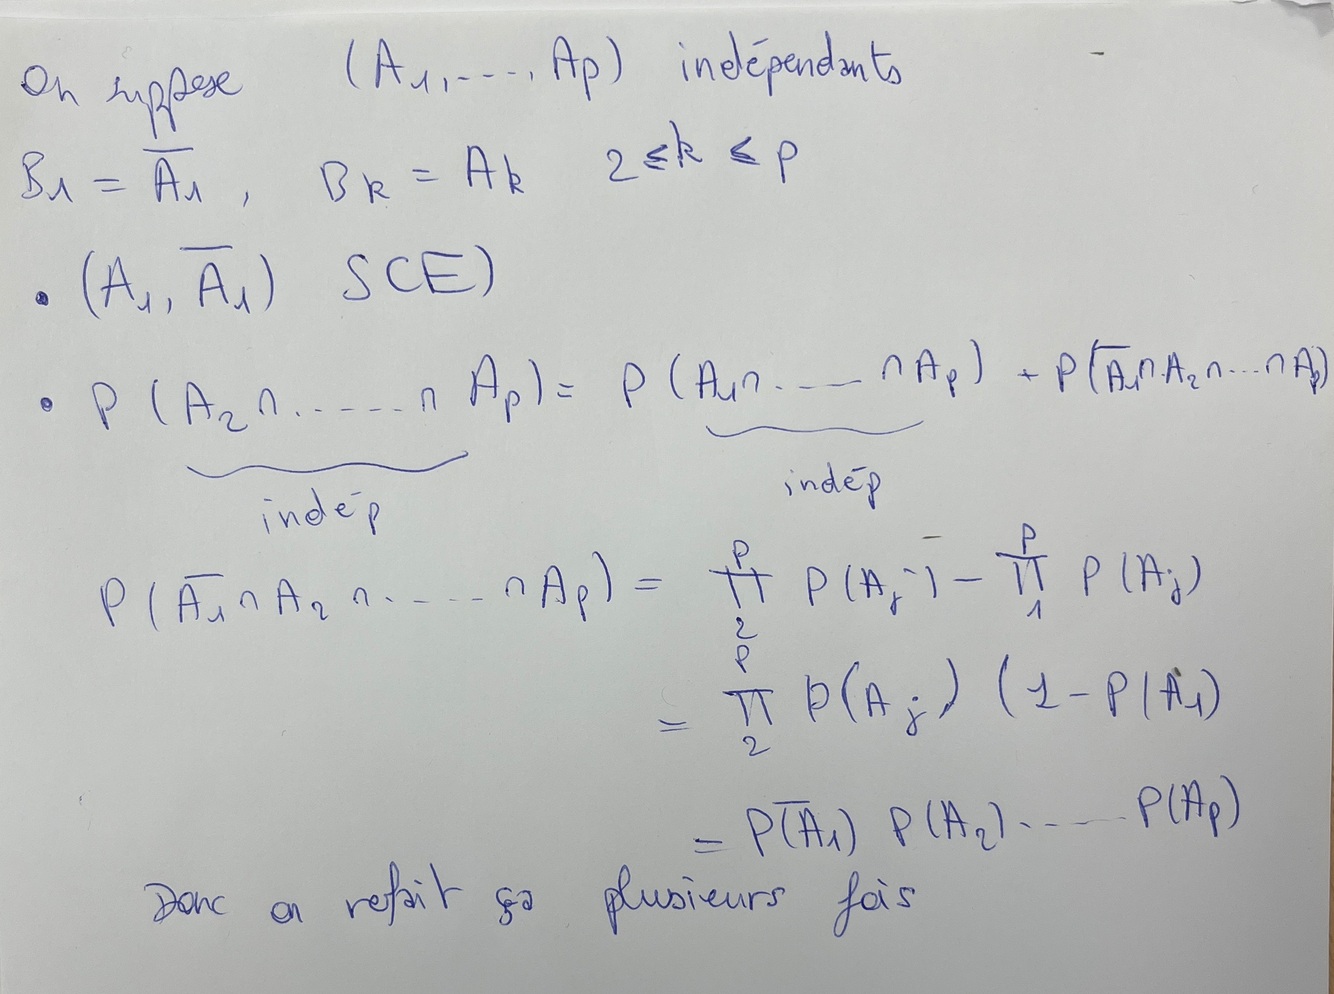 On suppose (A₁, ---, Ap) indépendants
B₁ = A̅₁, Bk = Ak 2 ≤ k ≤ p
• (A₁, A̅₁) SCE)
• P(A₂ ∩ ..... ∩ Ap) = P(A₁ ∩ ..... ∩ Ap) + P(A̅₁ ∩ A₂ ∩ ... ∩ Ap)
indép indép
P(A̅₁ ∩ A₂ ∩ ..... ∩ Ap) = ∏₂ᵖ P(Aj) - ∏₁ᵖ P(Aj)
= ∏₂ᵖ P(Aj) (1 - P(A₁)
= P(A̅₁) P(A₂) ..... P(Ap)
Donc on refait ça plusieurs fois